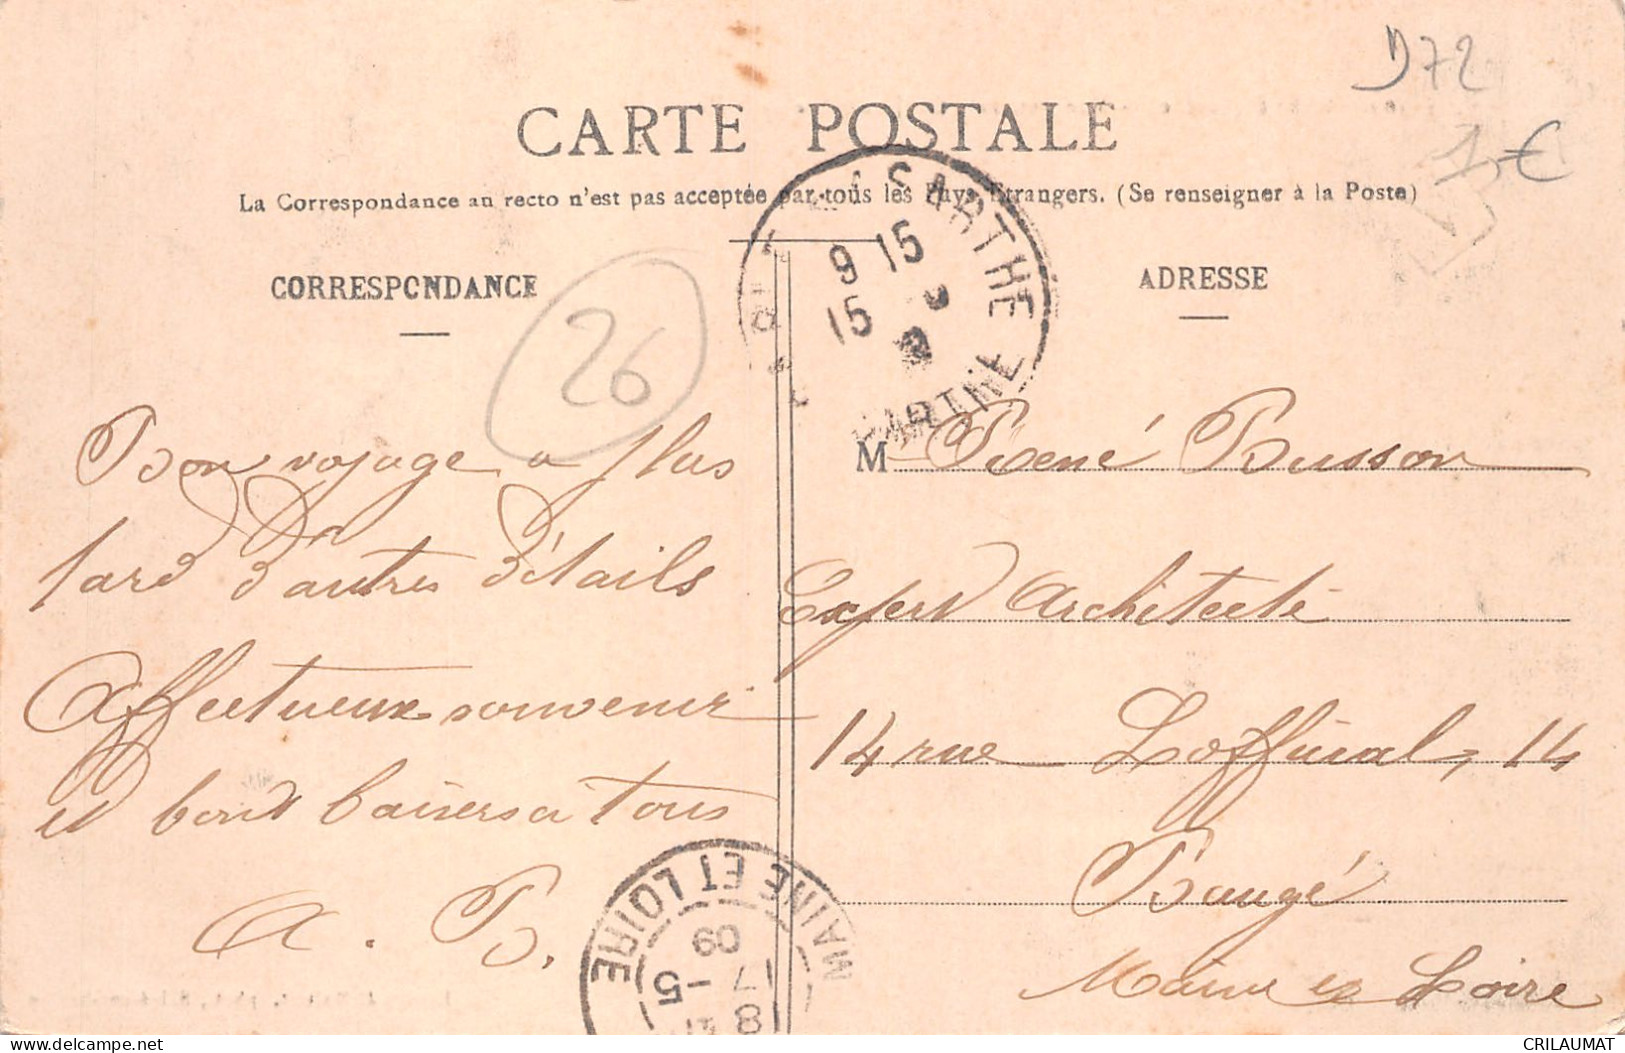 D72
1,-€
CARTE POSTALE
La Correspondance au recto n'est pas acceptée par tous les Pays Etrangers. (Se renseigner à la Poste)
CORRESPONDANCE
26
Bon voyage a plus
tard d'autres détails
Affectueux souvenir
et bons baisers a tous
A. B.
SARTHE
9 15
15
SARTHE
ADRESSE
M René Busson
Expert Architecte
14 rue Lofficial, 14
Baugé
Maine et Loire
MAINE ET LOIRE
18
17 - 5
09
CRILAUMAT